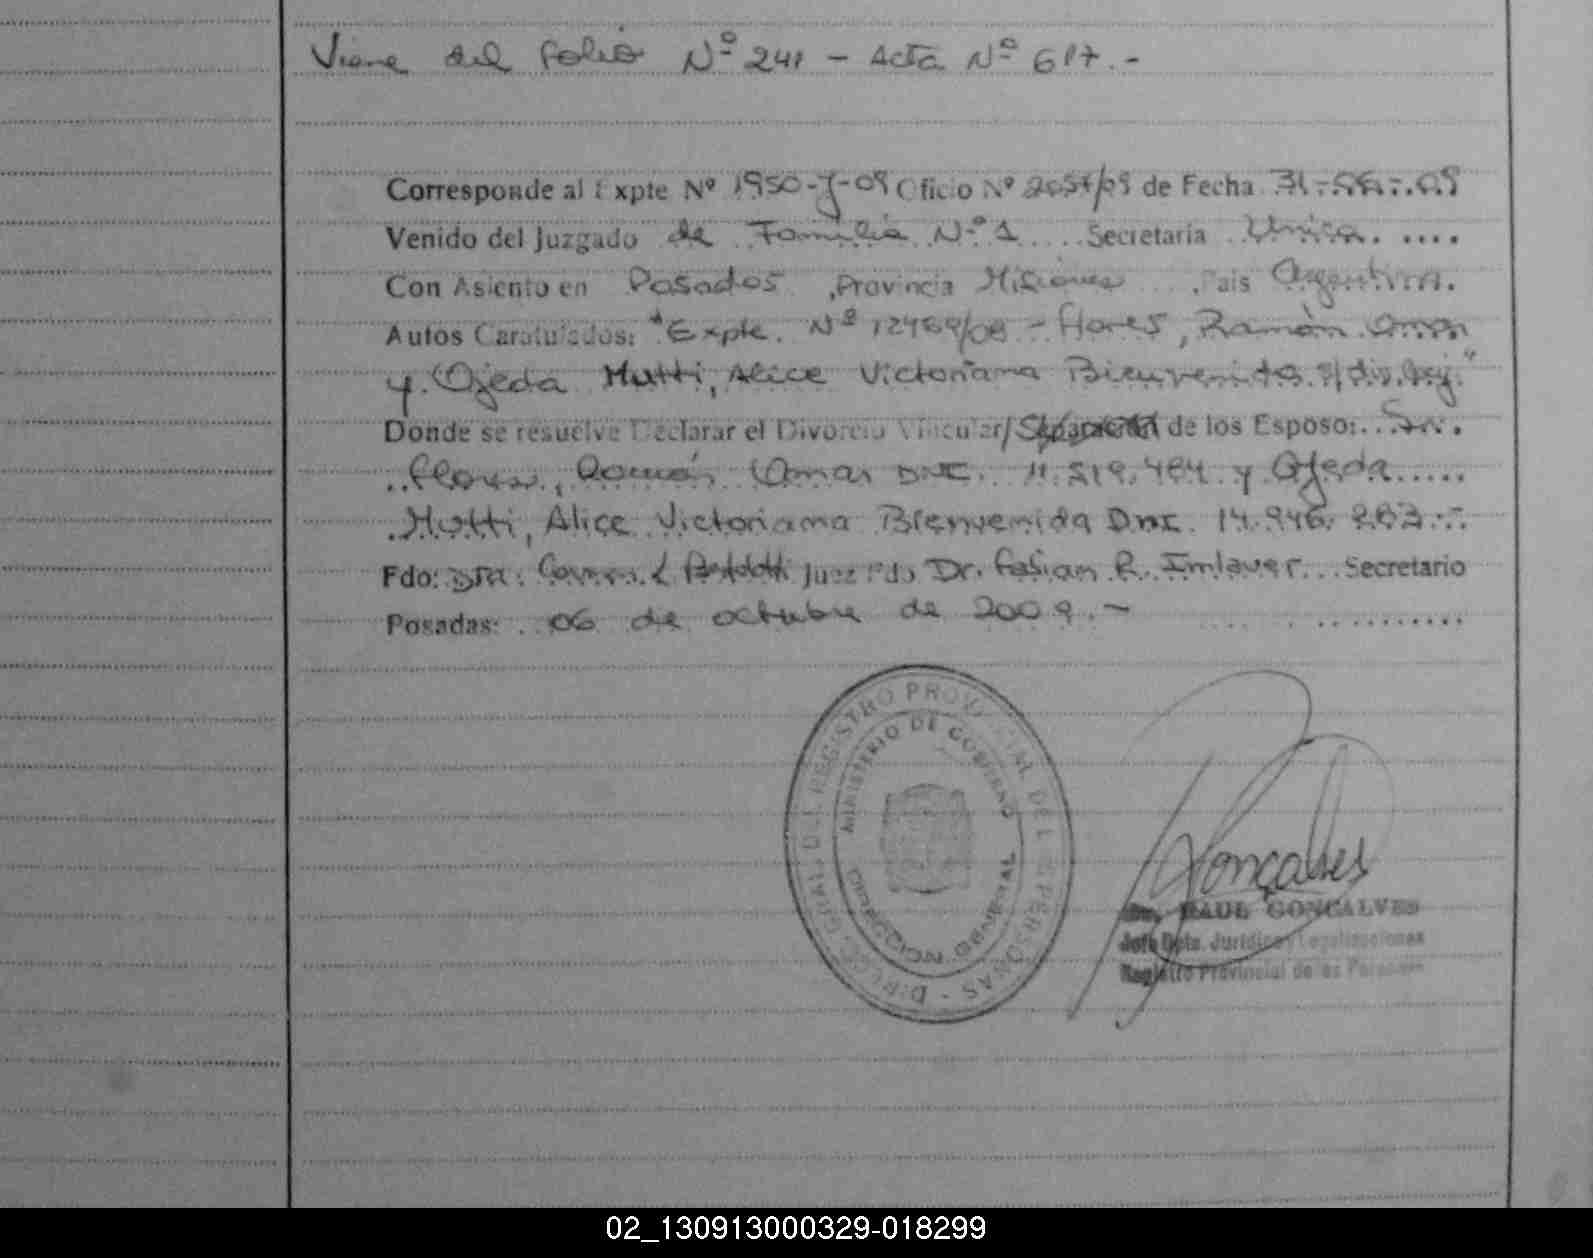 Viene del folio Nº 241 - Acta Nº 617.-
Corresponde al Expte Nº 1950-J-09 Oficio Nº 2057/09 de Fecha 31-08-09
Venido del Juzgado de Familia Nº 1 Secretaria Unica
Con Asiento en Posadas, Provincia Misiones, Pais Argentina.
Autos Caratulados: "Expte. Nº 12469/08 - Flores, Ramón Omar
y Ojeda Mutti, Alice Victoriana Bienvenida s/div. "
Donde se resuelve Declarar el Divorcio Vincular/Separación de los Esposo: Sr.
Flores, Ramón Omar DNI. 11.519.484 y Ojeda
Mutti, Alice Victoriana Bienvenida DNI. 14.946.283
Fdo: Dra. Juez Fdo Dr. Fabian R. Secretario
Posadas: 06 de octubre de 2009.-
DIRECC. GRAL. DEL REGISTRO PROVINCIAL DE LAS PERSONAS -
MINISTERIO DE GOBIERNO
DIRECCION GENERAL
Gonçalves
Dr. RAUL GONCALVES
Jefe Dpto. Juridico y Legalizaciones
Registro Provincial de las Personas
02_130913000329-018299